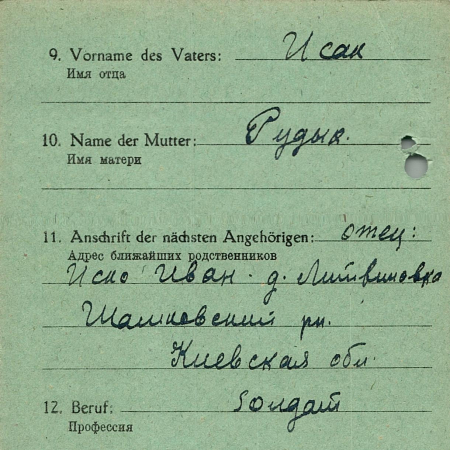 9. Vorname des Vaters: Исак
Имя отца
10. Name der Mutter: Рудык.
Имя матери
11. Anschrift der nächsten Angehörigen: отец:
Адрес ближайших родственников
Иско Иван. д. Литвиновка
Шашковский рн.
Киевская обл.
12. Beruf: Солдат
Профессия